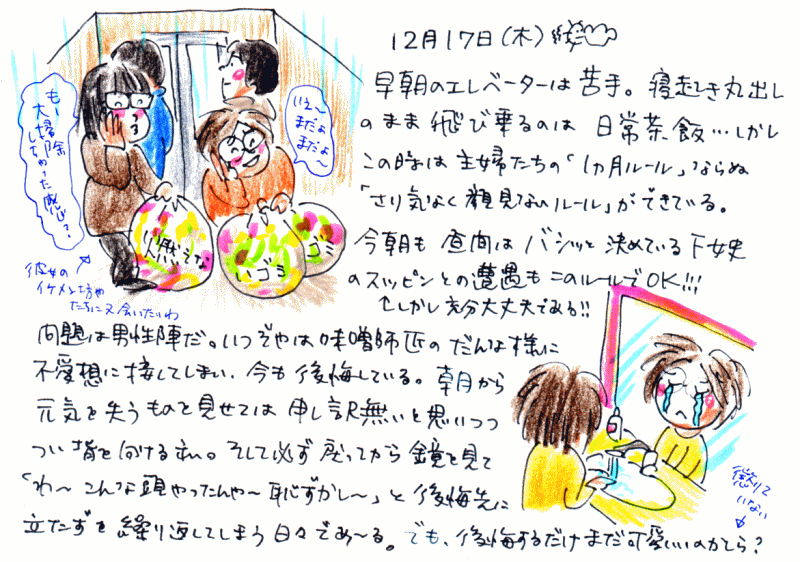 12月17日(木)
早朝のエレベーターは苦手。寝起き丸出し
のまま飛び乗るのは日常茶飯…しかし
この時は主婦たちの「1ヵ月ルール」ならぬ
「さり気なく顔見ないルール」ができている。
今朝も昼間はバシッと決めている下女史
のスッピンとの遭遇もこのルールでOK!!!
↑しかし充分大丈夫である!!
も〜
大掃除
しちゃった感じ?
いえ〜
まだよ
まだよ〜
燃えな
いゴミ
ゴミ
彼女の
イケメン坊や
たちに又会いたいわ
問題は男性陣だ。いつぞやは味噌師匹のだんな様に
不愛想に接してしまい、今も後悔している。朝から
元気を失うものを見せては申し訳無いと思いつつ
つい背を向ける私。そして必ず戻ってから鏡を見て
「わ〜こんな頭やったんや〜恥ずかし〜」と後悔先に
立たずを繰り返してしまう日々であ〜る。でも、後悔するだけまだ可愛いいのかしら?
懲りて
いない